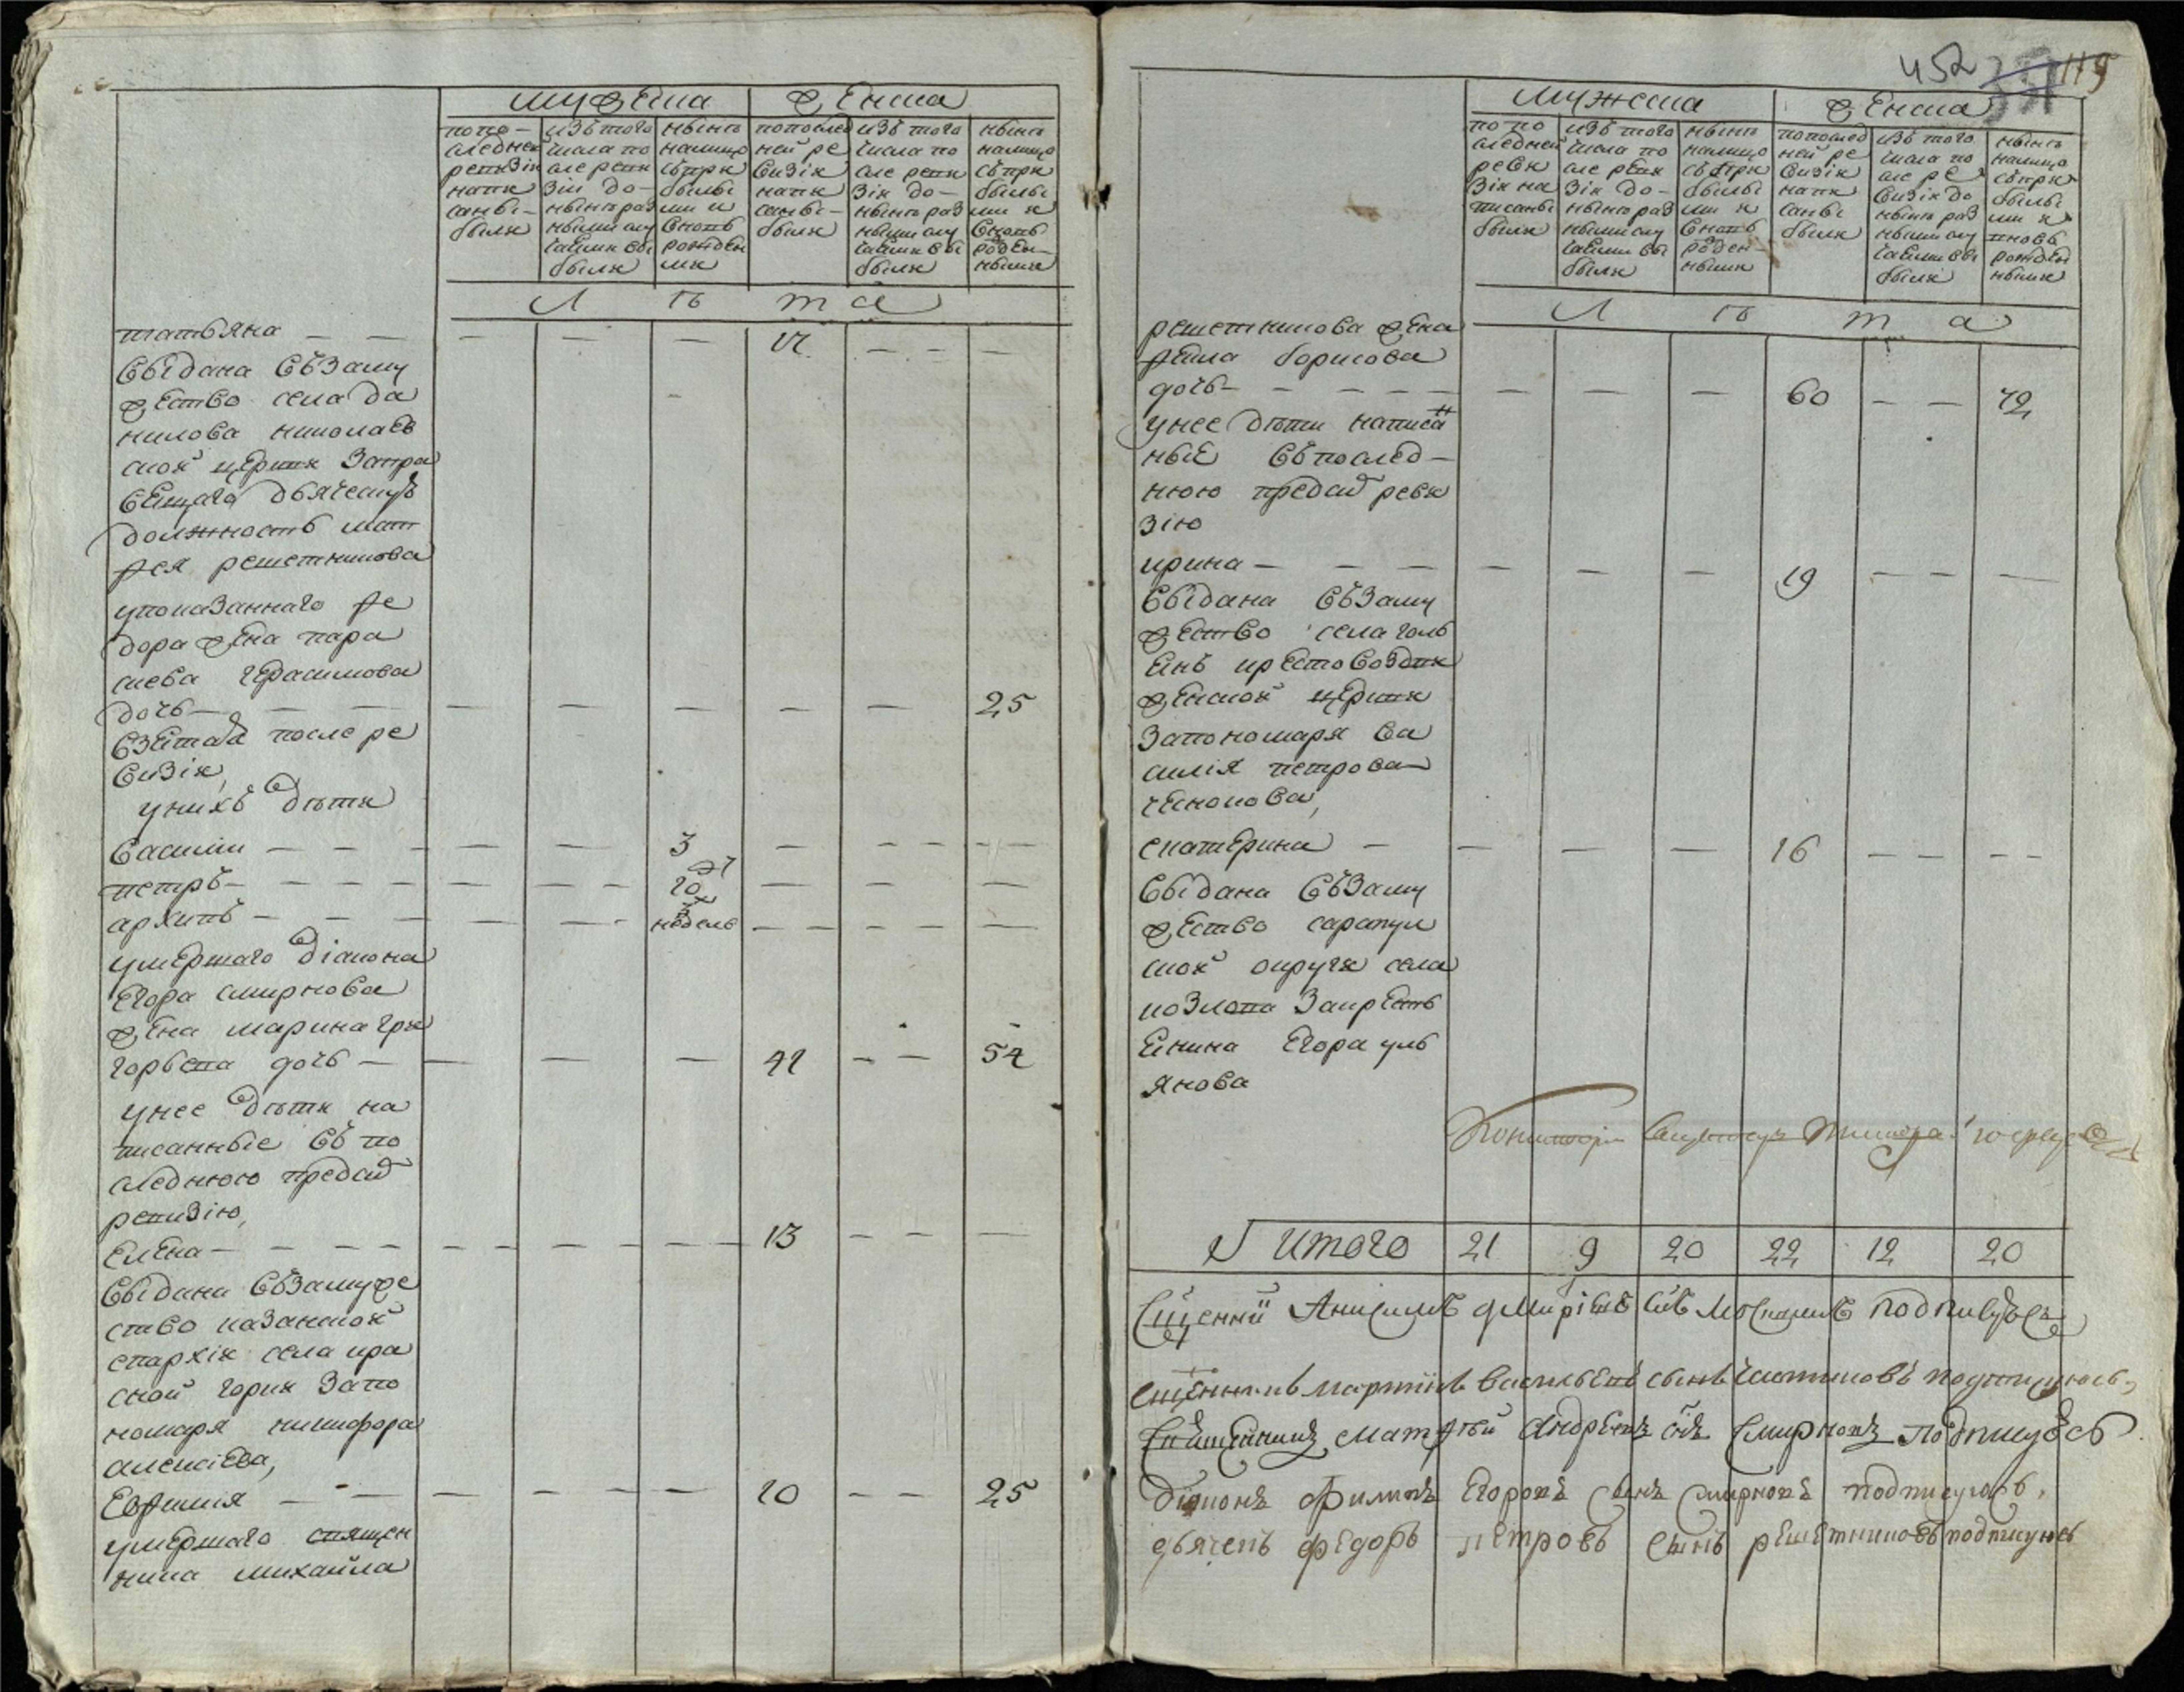 мужеска женска
попо-
следней
ревизiи
напи
санны-
были
изъ того
числа по
сле реви
зiи до-
ныне раз
ными слу
чаями вы
были
ныне
налицо
съ при
былы
ми и
вновь
рожден
ми
попослед
ней ре
визiи
напи
санны-
были
изъ того
числа по
сле реви
зiи до-
ныне раз
ными слу
чаями вы
были
ныне
налицо
съ при
былы
ми и
вновь
рожден-
ными
л ѣ т а
татьяна — —
выдана въ заму
жество села да
нилова николаев
ской церкви запра
вещаго дьяческу
должность мат
фея решетникова
упоказаннаго фе
дора жена пара
скева герасимова
дочь — — — — — — — — 25
взетая после ре
визiи,
у нихъ дѣти
василiи — — — — 3 — — — —
петръ — — — — — — 20 — — —
архипъ — — — — — недель — — — — —
умершаго дiакона
егора смирнова
жена марина гри
горьева дочь — — — — 41 — — 54
у нее дѣти на
писанные въ по
следнюю предъ сиѣ
ревизiю,
елена — — — — — — — — 13 — — —
выдана въ замуже
ство казанской
епархiи села кра
сной горки запо
номаря никифора
алексiева,
евфимия — — — — — — 10 — — 25
умершаго священ
ника михаила
452 119
мужеска женска
по по
следней
реви
зiи на
писаны
были
изъ того
числа по
сле реви
зiи до-
ныне раз
ными слу
чаями вы
были
ныне
налицо
съ при
былы
ми и
вновь
рожден-
ными
попослед
ней ре
визiи
напи
санны
были
изъ того
числа по
сле ре
визiи до
ныне раз
ными слу
чаями вы
были
ныне
налицо
съ при
былы
ми и
вновь
рожден
ными
л ѣ т а
решетникова жена
фекла борисова
дочь — — — — — — — — 60 — — 72
у нее дѣти написан
ные въ послед-
нюю предъ сиѣ реви
зiю
ирина — — — — — — 19 — — —
выдана въ заму
жество села голь
янъ крестовоздви
женской церкви
запономаря ва
силiя петрова
чеснокова,
екатерина — — — — 16 — — — —
выдана въ заму
жество сарапул
ской округи села
козлова закресть
янина егора уль
янова
итого 21 9 20 22 12 20
Сщенникъ мартинъ васильевъ сынъ подпишуюсь,
Сщенникъ матфей Андреевъ сынъ Смирновъ подпишуюсь
дiяконъ филипъ егоровъ сынъ смирновъ подписуюсь,
дьячекъ федоръ петровъ сынъ решетниковъ подписуюсь